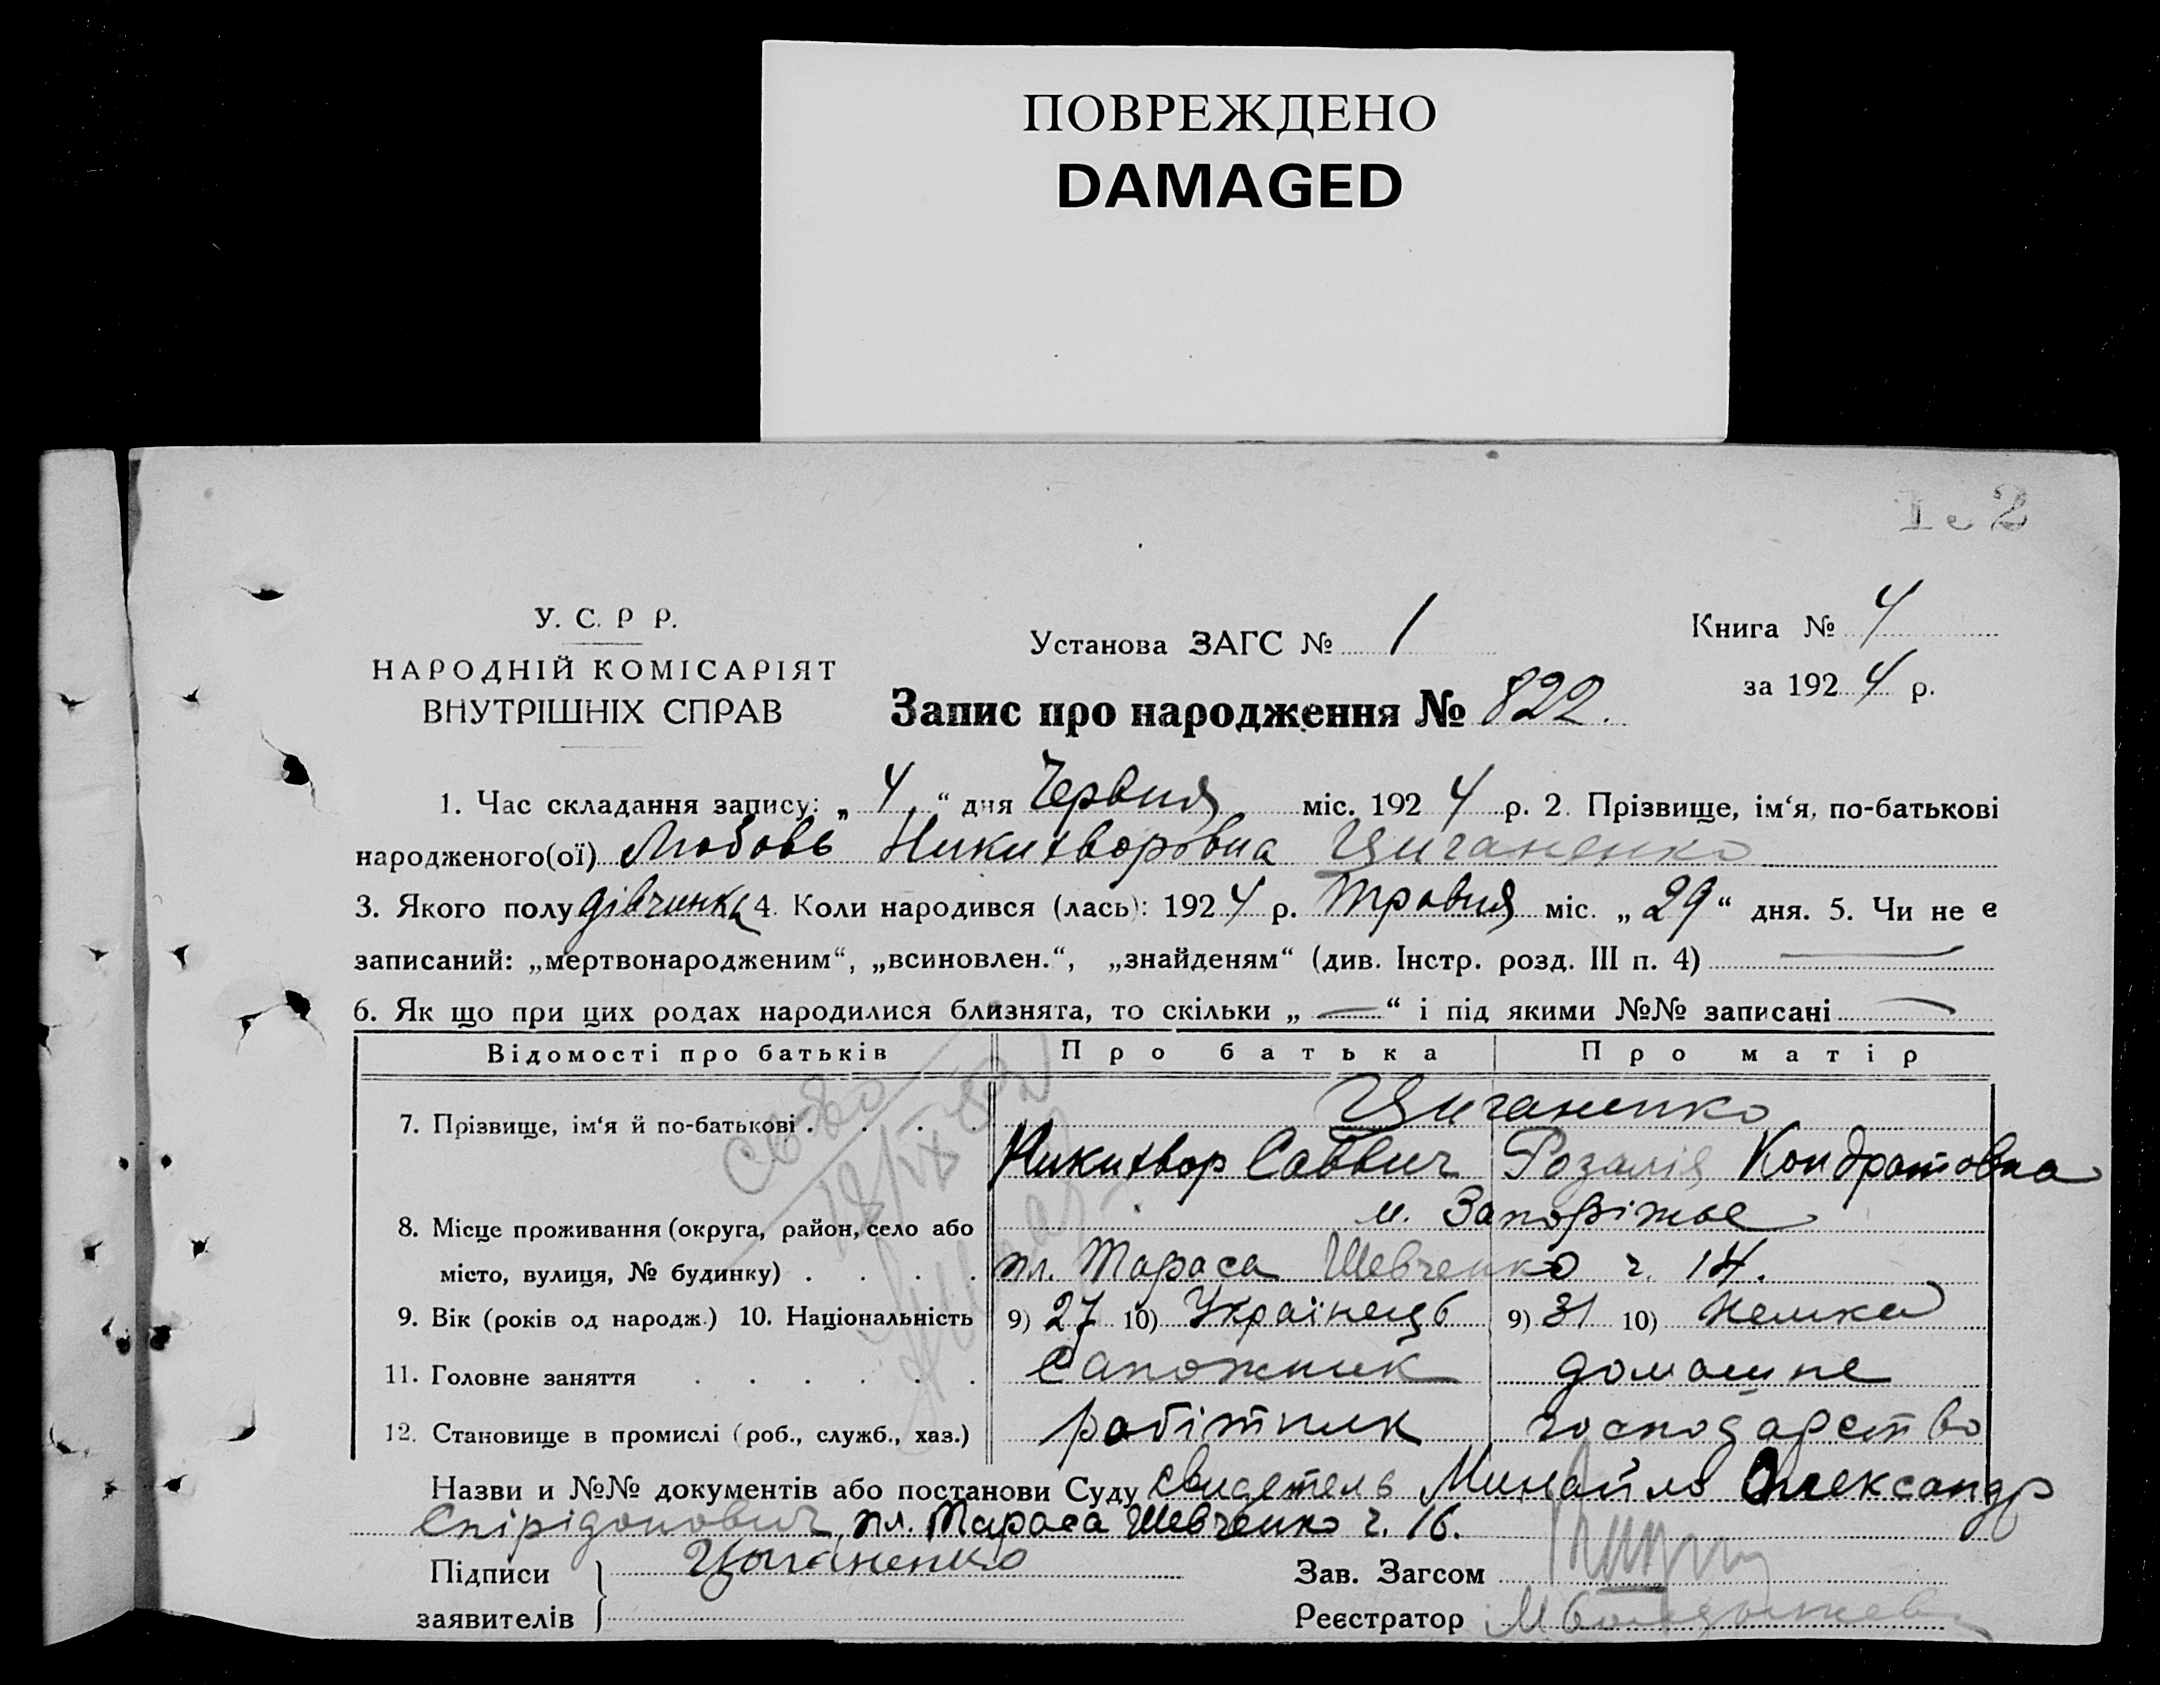 ПОВРЕЖДЕНО
DAMAGED
У. С. Р Р.
НАРОДНІЙ КОМІСАРІЯТ
ВНУТРІШНІХ СПРАВ
Установа ЗАГС № 1
Книга № 4
за 192 4 р.
Запис про народження № 822.
1. Час складання запису: „ 4 “ дня Червня міс. 192 4 р. 2. Прізвище, ім‘я, по-батькові
народженого(ої) Любовь Никихворовна Циганенко
3. Якого полу дівчинка 4. Коли народився (лась): 192 4 р. Травня міс. „ 29 “ дня. 5. Чи не є
записаний: „мертвонародженим“, „всиновлен.“, „знайденям“ (див. Інстр. розд. III п. 4)
6. Як що при цих родах народилися близнята, то скільки „ — “ і під якими №№ записані —
Відомості про батьків Про батька Про матір
7. Прізвище, ім‘я й по-батькові . . . . Циганенко
Никихвор Саввич Розалія Кондратовна
8. Місце проживання (округа, район, село або м. Запоріжье
місто, вулиця, № будинку) . . . . пл. Тараса Шевченко ч. 14.
9. Вік (років од народж.) 10. Національність 9) 27 10) Українець 9) 31 10) Немка
11. Головне заняття . . . . . . Сапожник домашне
12. Становище в промислі (роб., служб., хаз.) робітник господарство
Назви и №№ документів або постанови Суду свидетель Михайло Олександр
Спірідонович, пл. Тараса Шевченко ч. 16.
Підписи Цыганенко Зав. Загсом
заявителів Реєстратор